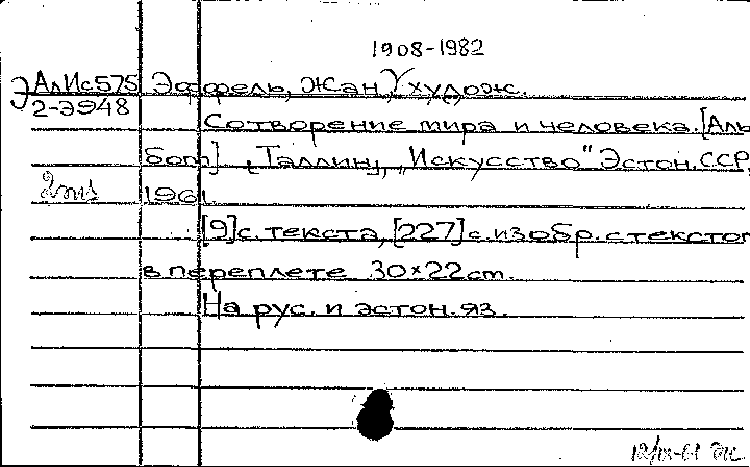 1908-1982
Э АлИс575 Эффель, Жан, худож.
2-ЭЭ48
Сотворение мира и человека. [Аль
бом] [Таллин], "Искусство" Эстон. ССР,
1961
[9] с. текста, [227] с. изобр. с текстом
в переплете 30×22 cm.
На рус. и эстон. яз.